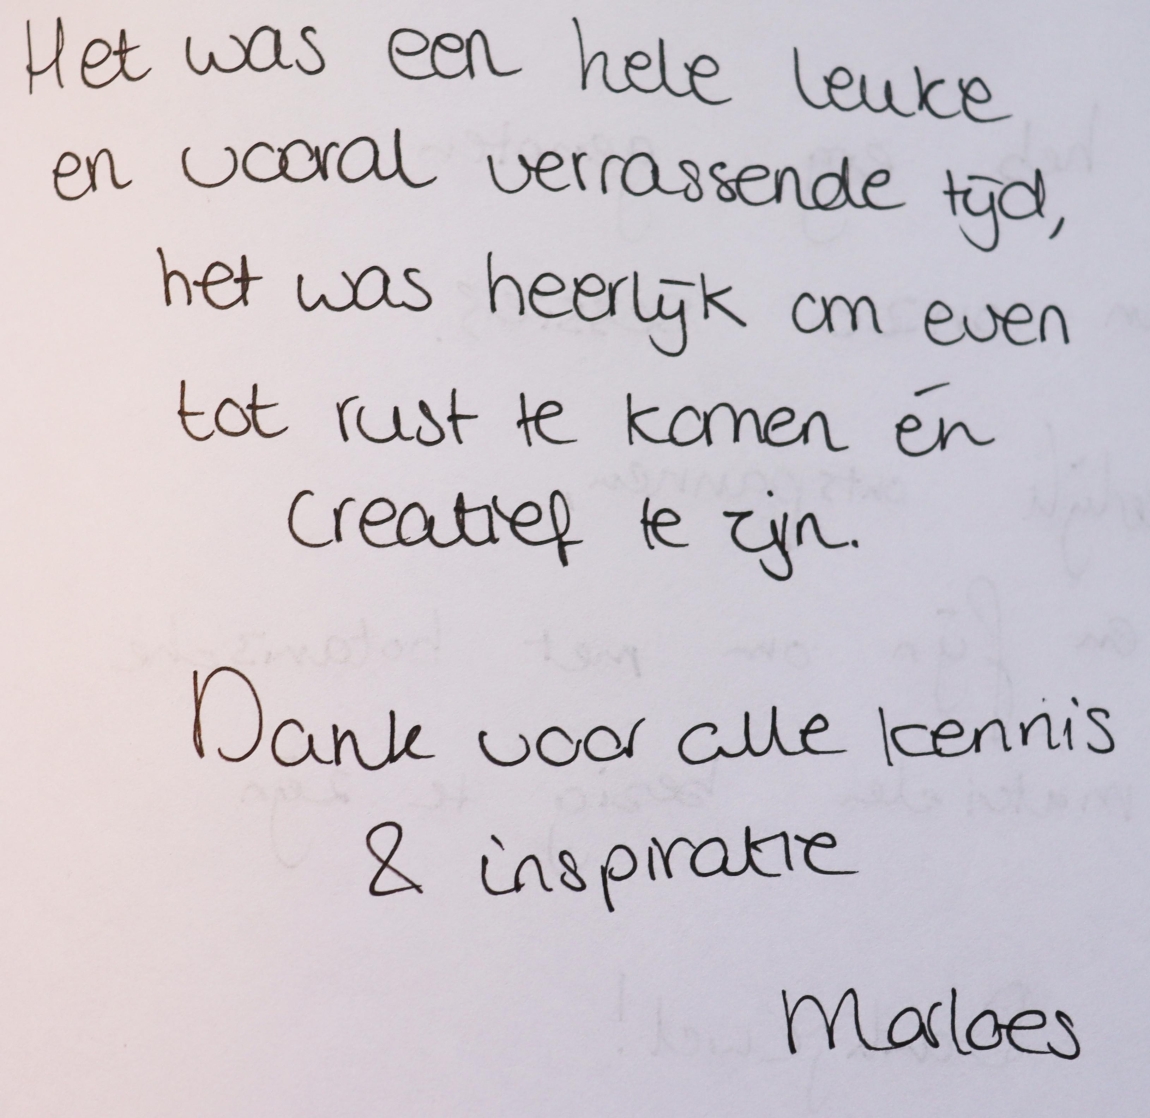 Het was een hele leuke
en vooral verrassende tijd,
het was heerlijk om even
tot rust te komen én
creatief te zijn.
Dank voor alle kennis
& inspiratie
Marloes